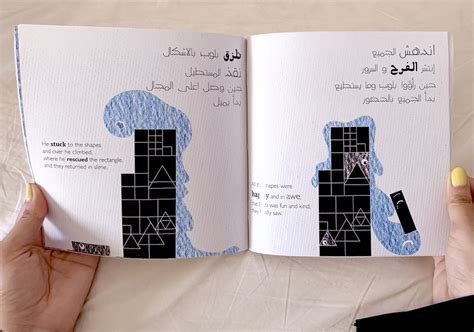 طرق بلوب بالاشكال
نقذ المستطيل
حين وصل اعلى المجال
بدأ يميل
He stuck to the shapes
and over he climbed,
where he rescued the rectangle,
and they returned in slime.
اندهش الجميع
إنتشر الفرح و السرور
حين رأووا بلوب وما يستطيع
بدأ الجميع بالحضور
shapes were
happy and in awe,
was fun and kind,
they saw.